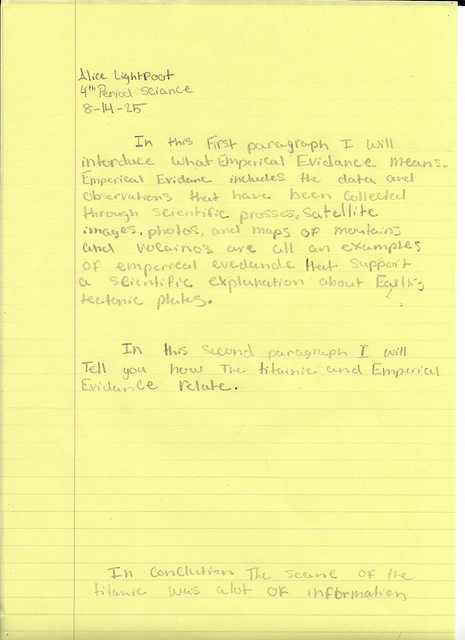 Alice Lightfoot
4th Period Sciance
8-14-25
In this First paragraph I will
interduce what Emperical Evidance means.
Emperical Evidane includes the data and
observations that have been collected
through scientific prosses. Satellite
images, photos, and maps of mountains
and volcainos are all an examples
of emperical evedande that support
a scientific explanation about Earth's
tectonic plates.
In this second paragraph I will
Tell you how The titainic and Emperical
Evidance relate.
In conclution The scene of the
titanic was alot of information